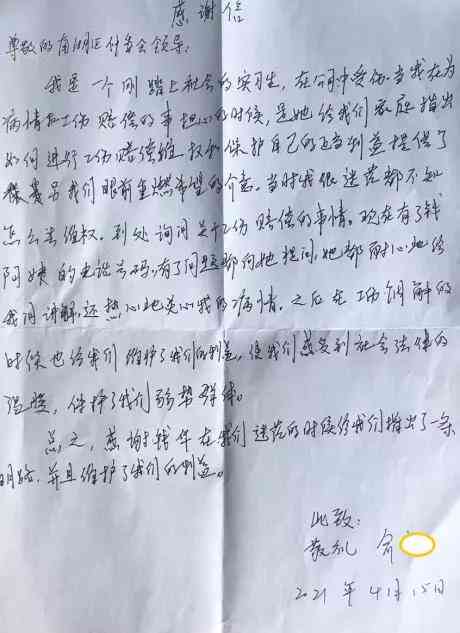 感谢信
尊敬的南湖区仲委会领导：
我是一个刚踏上社会的实习生，在公司中受伤。当我在为
病情和工伤赔偿的事担心的时候，是她给我们家庭指出
如何进行工伤赔偿维权和保护自己的正当利益提供了
我们眼前重燃希望的介意。当时我很迷茫都不知
怎么去维权。到处询问关于工伤赔偿的事情。现在有了钱
阿姨的电话号码，有了问题都向她提问，她都耐心地给
我讲解，还热心地关心我的病情。之后在工伤调解的
时候也给我们维护了我们的利益，使我们感受到社会法律的
温暖，保护了我们弱势群体。
总之，感谢钱华在我们迷茫的时候给我们指出了一条
明路，并且维护了我们的利益。
此致：
敬礼 俞
2021年4月15日